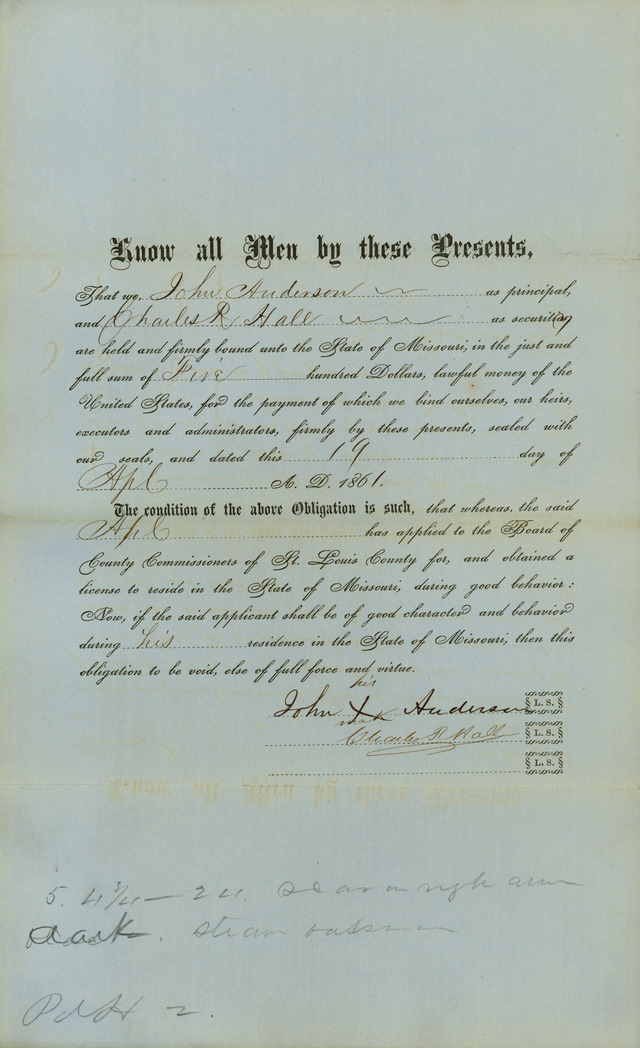 Know all Men by these Presents,
That we, John Anderson as principal,
and Charles R Hall as securities
are held and firmly bound unto the State of Missouri, in the just and
full sum of Five hundred Dollars, lawful money of the
United States, for the payment of which we bind ourselves, our heirs,
executors and administrators, firmly by these presents, sealed with
our seals, and dated this 19 day of
Apl A. D. 1861.
The condition of the above Obligation is such, that whereas, the said
Apl has applied to the Board of
County Commissioners of St. Louis County for, and obtained a
license to reside in the State of Missouri, during good behavior:
Now, if the said applicant shall be of good character and behavior
during his residence in the State of Missouri, then this
obligation to be void, else of full force and virtue.
his
John X Anderson § L. S. §
mark
Charles R Hall § L. S. §
§ L. S. §
5. 4 3/4 — 24. Scar on right arm
dark. steam boatman
Pd $ 2.